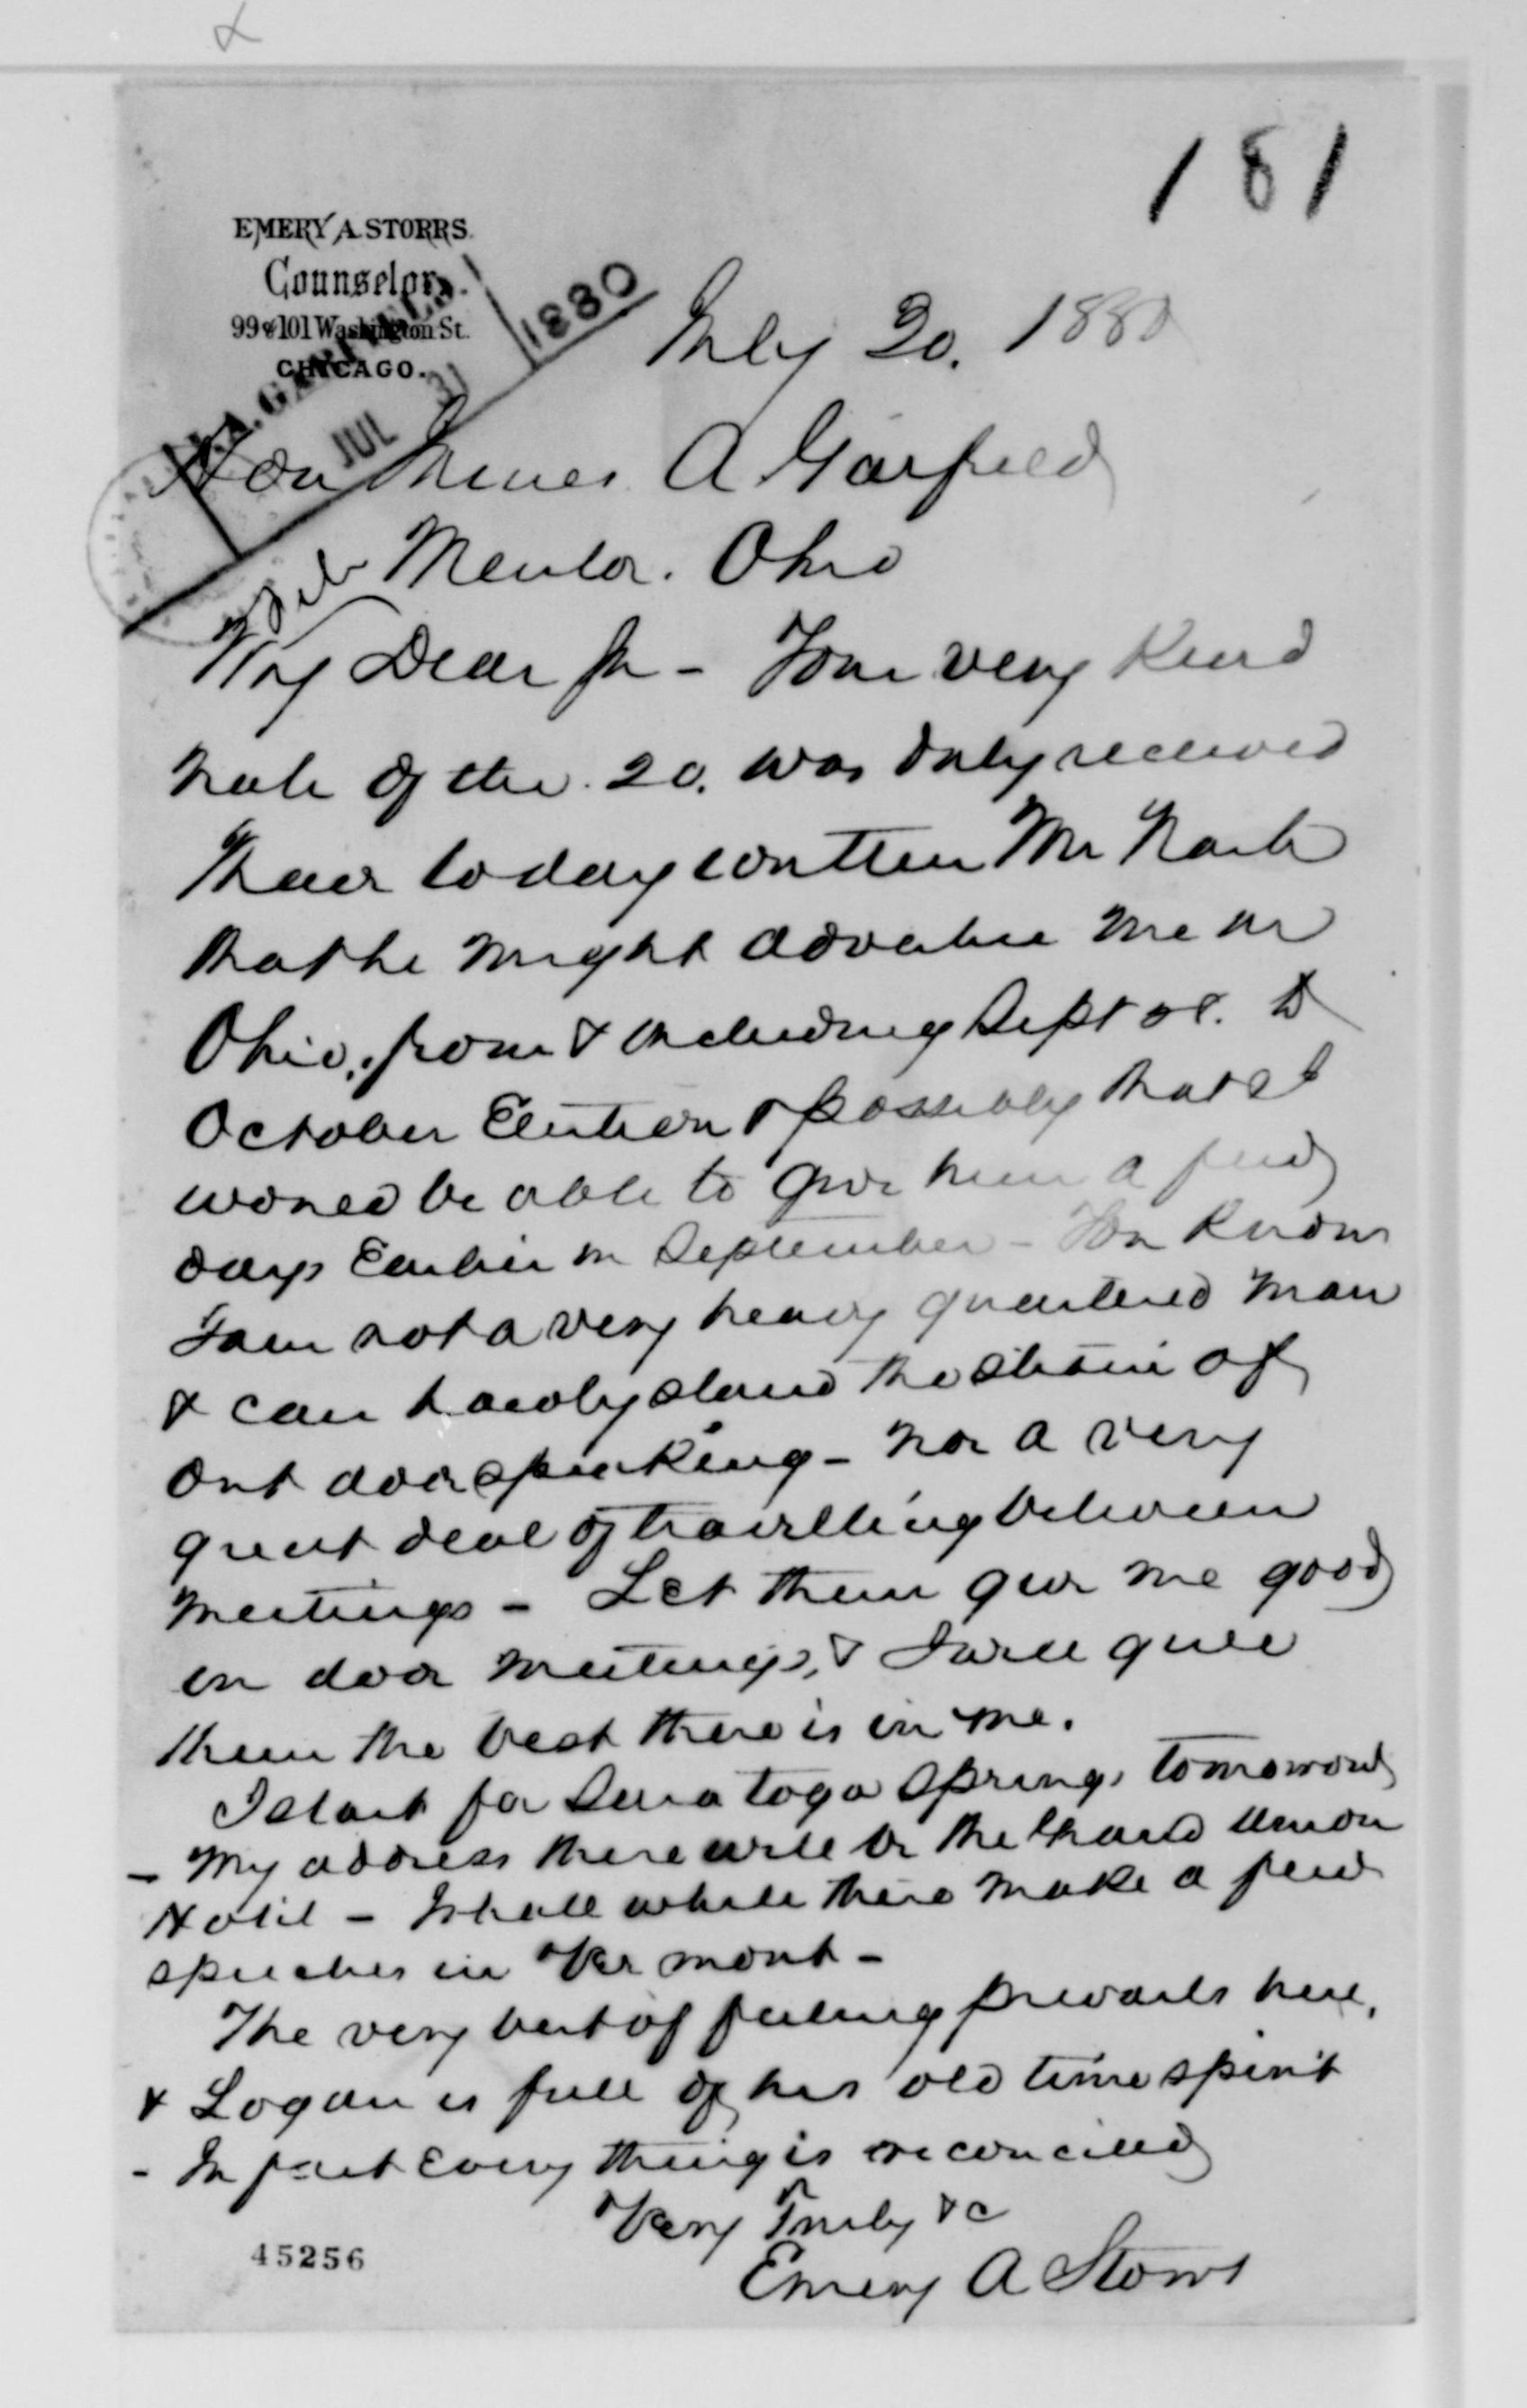 181
EMERY A. STORRS.
Counselor.
99 & 101 Washington St.
CHICAGO.
J. A. GARFIELD.
JUL 31
1880
July 30. 1880
Hon James A Garfield
Mentor. Ohio
My Dear Sir - Your very kind
note of the 20. was duly received
I have to day written Mr Nash
that he might advertise me in
Ohio, from & including Sept 28. to
October Election & possibly that I
would be able to give him a few
days Earlier in September - You know
I am not a very heavy quartered man
& can hardly stand the strain of
out door speaking - nor a very
great deal of travelling between
meetings - Let them give me good
in door meetings, & I will give
them the best there is in me.
I start for Saratoga Springs tomorrow
- My address there will be the Grand Union
Hotel - I shall while there make a few
speeches in Vermont -
The very best of feeling prevails here,
& Logan is full of his old time spirit
- In fact Every thing is reconciled
Very Truly &c
Emery A Storrs
45256